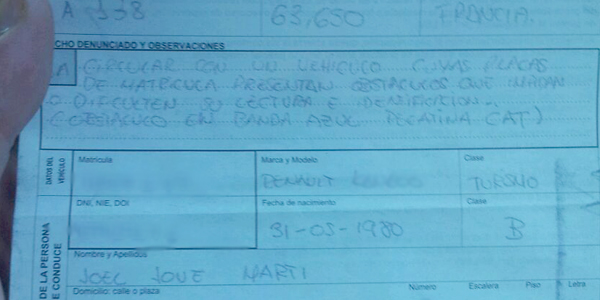 A 138 63,650 FRANCIA.
CHO DENUNCIADO Y OBSERVACIONES
A CIRCULAR CON UN VEHICULO CUYAS PLACAS
DE MATRICULA PRESENTAN OBSTACULOS QUE IMPIDAN
O DIFICULTEN SU LECTURA E IDENTIFICACION.
(OBSTACULO EN BANDA AZUL PEGATINA CAT)
DATOS DEL VEHÍCULO
Matrícula Marca y Modelo Clase
RENAULT TURSMO
DNI, NIE, DOI Fecha de nacimiento Clase
31-05-1980 B
DE LA PERSONA
E CONDUCE
Nombre y Apellidos
JOEL JOVE MARTI
Domicilio: calle o plaza Número Escalera Piso Letra